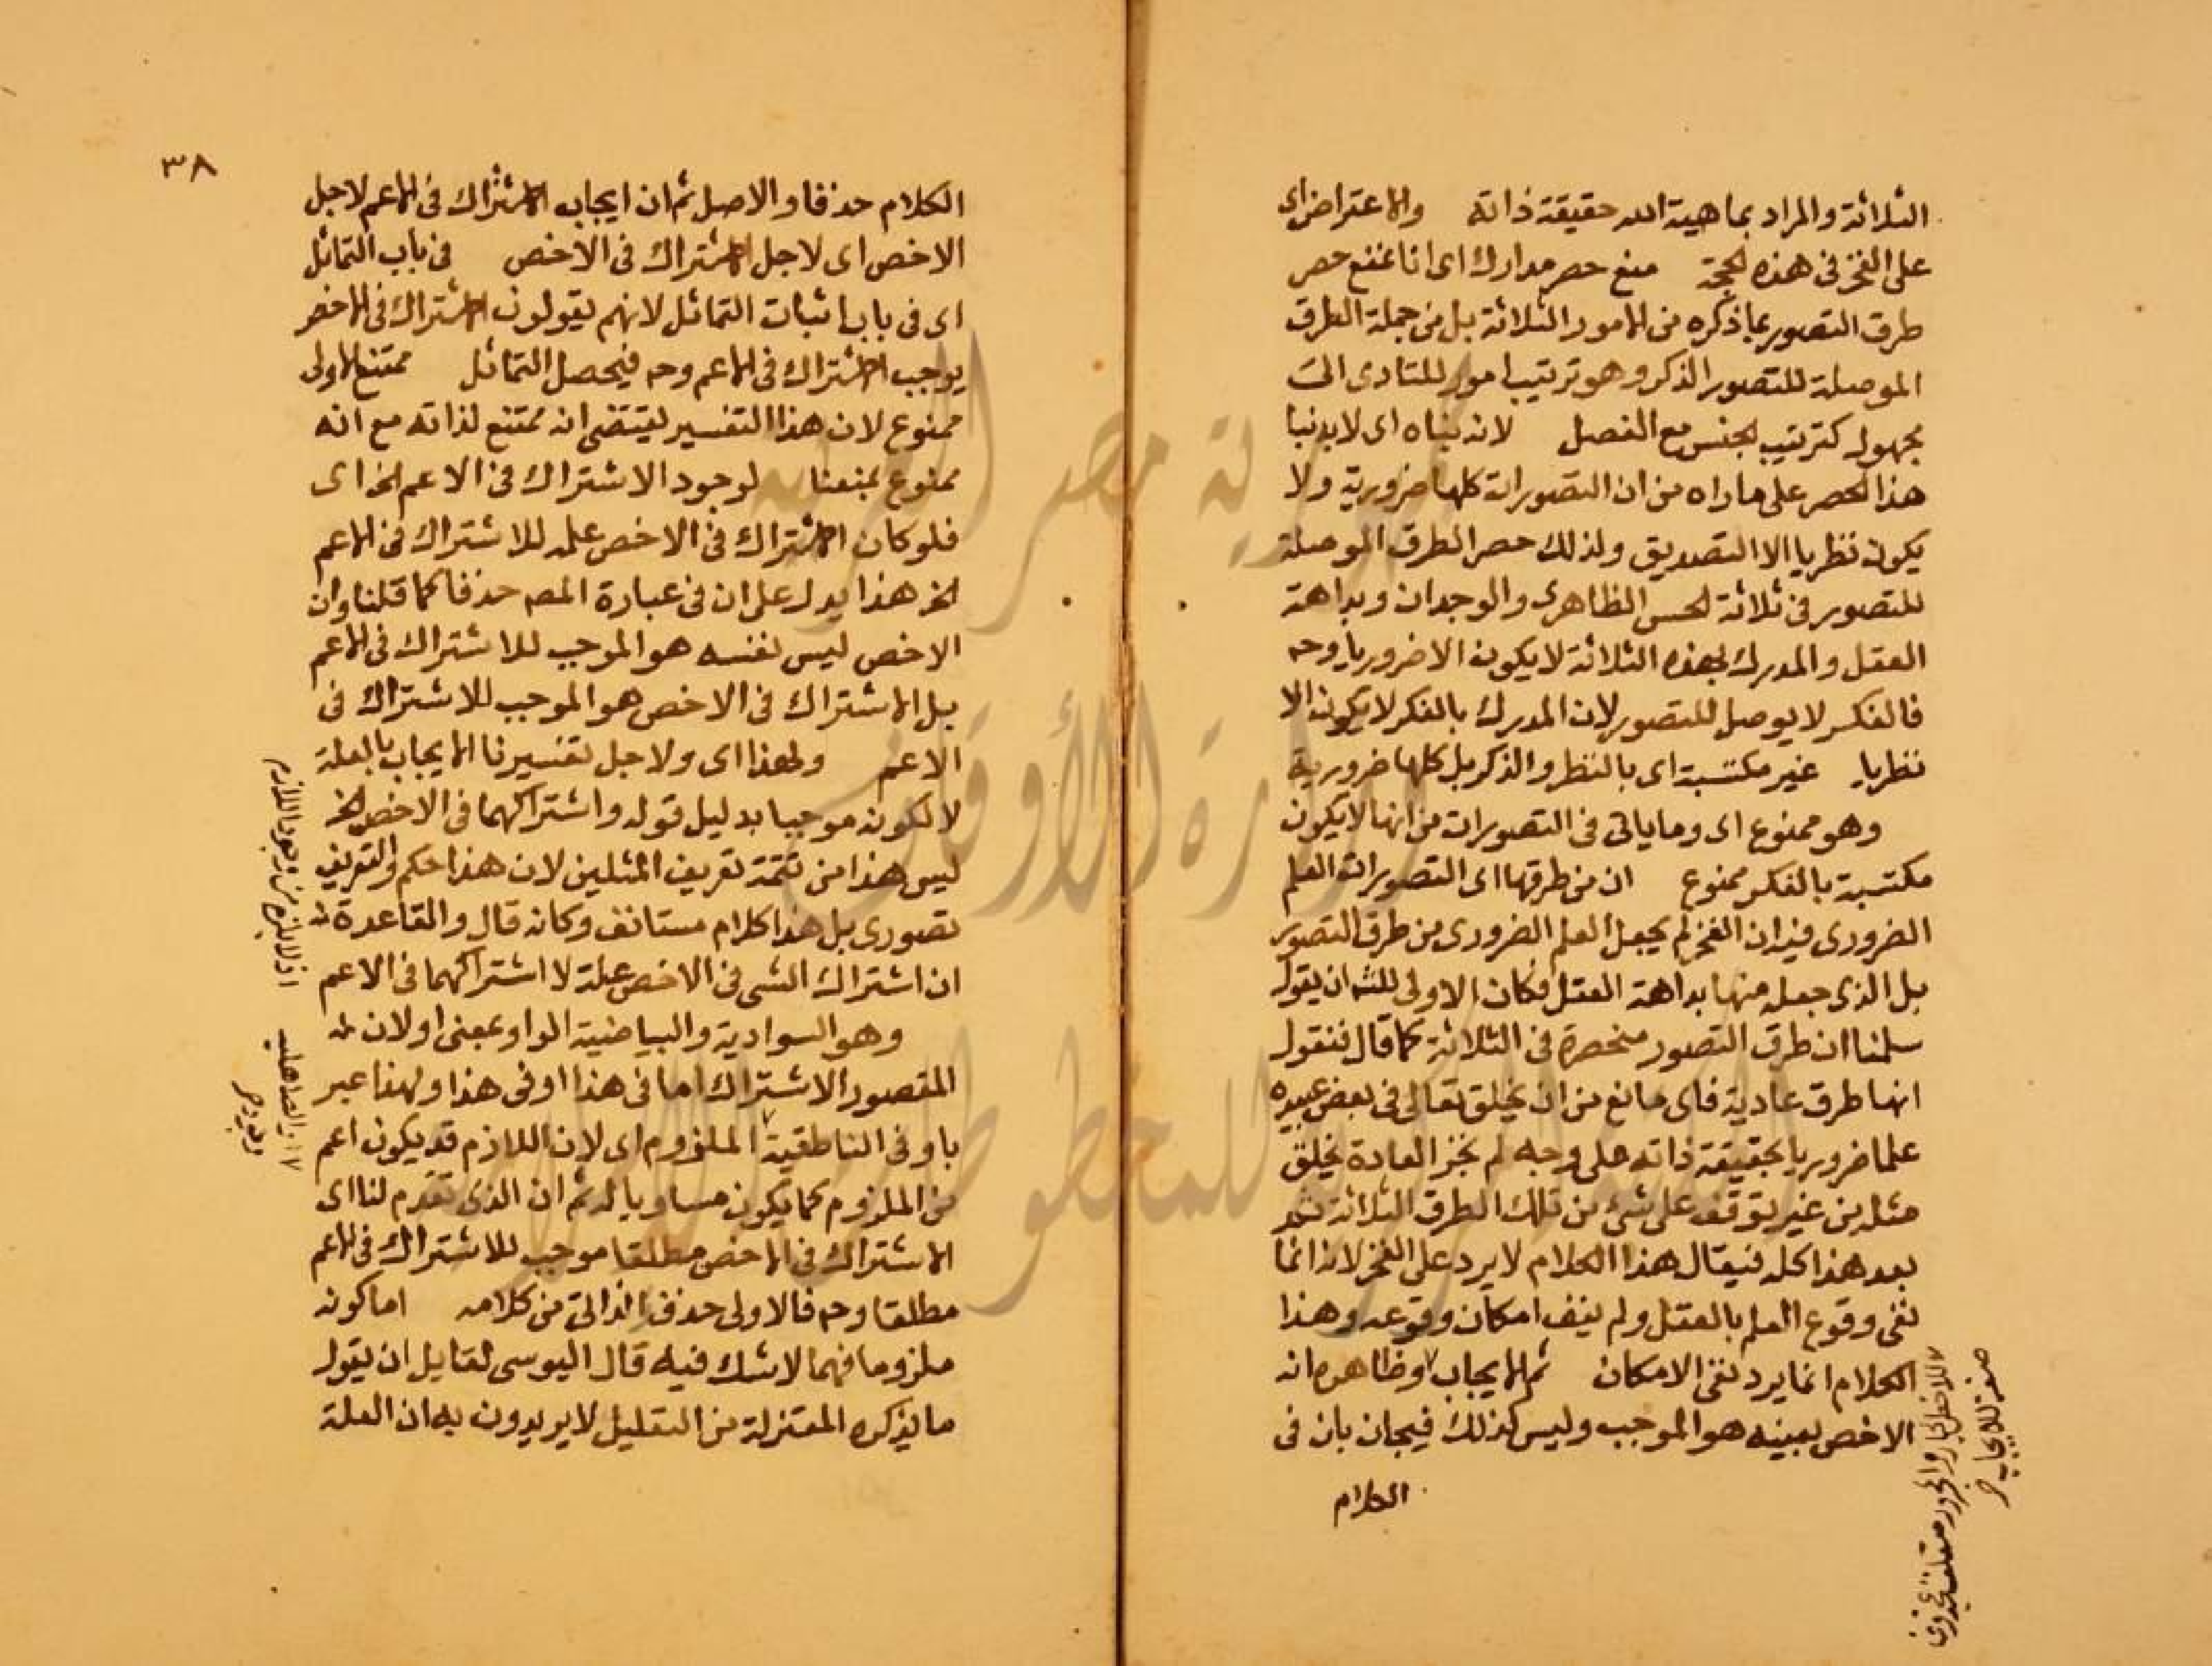 الثلاثة والمراد بماهية الله حقيقة ذاته والاعتراض اى
على الفخر فى هذه الحجة منع حصر مدارك اى انا نمنع حصر
طرق التصور بما ذكره من الامور الثلاثة بل من جملة الطرق
الموصلة للتصور الذكر وهو ترتيب امور للتادى الى
مجهول كترتيب الجنس مع الفصل لانه بناه اى لانه بنا
هذا الحصر على ما راه من ان التصورات كلها ضرورية ولا
يكون نظريا الا التصديق ولذلك حصر الطرق الموصلة
للتصور فى ثلاثة الحس الظاهرى والوجدان وبداهة
العقل والمدرك بهذه الثلاثة لا يكون الا ضروريا وح
فالفكر لا يوصل للتصور لان المدرك بالفكر لا يكون الا
نظريا غير مكتسبة اى بالنظر والذكر بل كلها ضرورية
وهو ممنوع اى وما ياتى فى التصورات من انها لا يكون
مكتسبة بالفكر ممنوع ان من طرقها اى التصورات العلم
الضرورى فيه ان الفخر لم يجعل العلم الضرورى من طرق التصور
بل الذى جعله منها بداهة العقل فكان الاولى للشه ان يقول
سلمنا ان طرق التصور منحصرة فى الثلاثة كما قال فنقول
انها طرق عادية فاى مانع من ان يخلق تعالى فى بعض عبيده
علما ضروريا بحقيقة ذاته على وجه لم تجز العادة بخلق
مثله من غير توقف على شئ من تلك الطرق الثلاثة
بعد هذا كله فيقال هذا الكلام لا يرد على الفخر لانه انما
نفى وقوع العلم بالعقل ولم ينف امكان وقوعه وهذا
الكلام انما يرد نفى الامكان ثم الايجاب وظاهره انه
الاخص بعينه هو الموجب وليس كذلك فيجاب بان فى
الكلام
للاخص الجار والمجرور متعلق بمحذوف
صفة للايجاب
٣٨
الكلام حذفا والاصل ثم ان ايجاب الاشتراك فى الاعم لاجل
الاخص اى لاجل الاشتراك فى الاخص فى باب التماثل
اى فى باب اثبات التماثل لانهم يقولون الاشتراك فى الاخص
يوجب الاشتراك فى الاعم وح فيحصل التماثل ممتنع الاولى
ممنوع لان هذا التفسير يقتضى انه ممتنع لذاته مع انه
ممنوع بمنعنا لوجود الاشتراك فى الاعم الخ اى
فلو كان الاشتراك فى الاخص علة للاشتراك فى الاعم
الخ هذا يدل على ان فى عبارة المصه حذفا كما قلنا وان
الاخص ليس نفسه هو الموجب للاشتراك فى الاعم
بل الاشتراك فى الاخص هو الموجب للاشتراك فى
الاعم ولهذا اى ولاجل تفسيرنا الايجاب بالعلة
لا لكونه موجبا بدليل قوله واشتراكهما فى الاخص الخ
ليس هذا من تتمة تعريف المثلين لان هذا حكم والتعريف
تصورى بل هذا كلام مستانف وكانه قال والقاعدة
ان اشتراك الشى فى الاخص علة لا اشتراكهما فى الاعم
وهو السوادية والبياضية الواو بمعنى او لان
المقصود الاشتراك اما فى هذا او فى هذا ولهذا عبر
باو فى الناطقية الملزوم اى لان اللازم قد يكون اعم
من الملزوم كما يكون مساويا له ثم ان الذى تقدم لنا اى
الاشتراك فى الاخص مطلقا موجب للاشتراك فى الاعم
مطلقا وح فالاولى حذف الذاتى من كلامه اما كونه
ملزوما فهما لا شك فيه قال اليوسى لقايل ان يقول
ما يذكره المعتزلة من التعليل لا يريدون به ان العلة